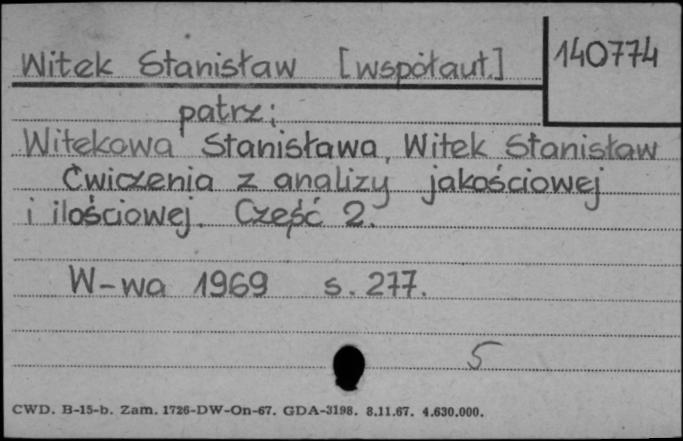 Witek Stanisław [współaut.]
140774
patrz:
Witekowa Stanisława, Witek Stanisław
Ćwiczenia z analizy jakościowej
i ilościowej. Część 2.
W-wa 1969 s. 277.
5
CWD. B-15-b. Zam. 1726-DW-On-67. GDA-3198. 8.11.67. 4.630.000.